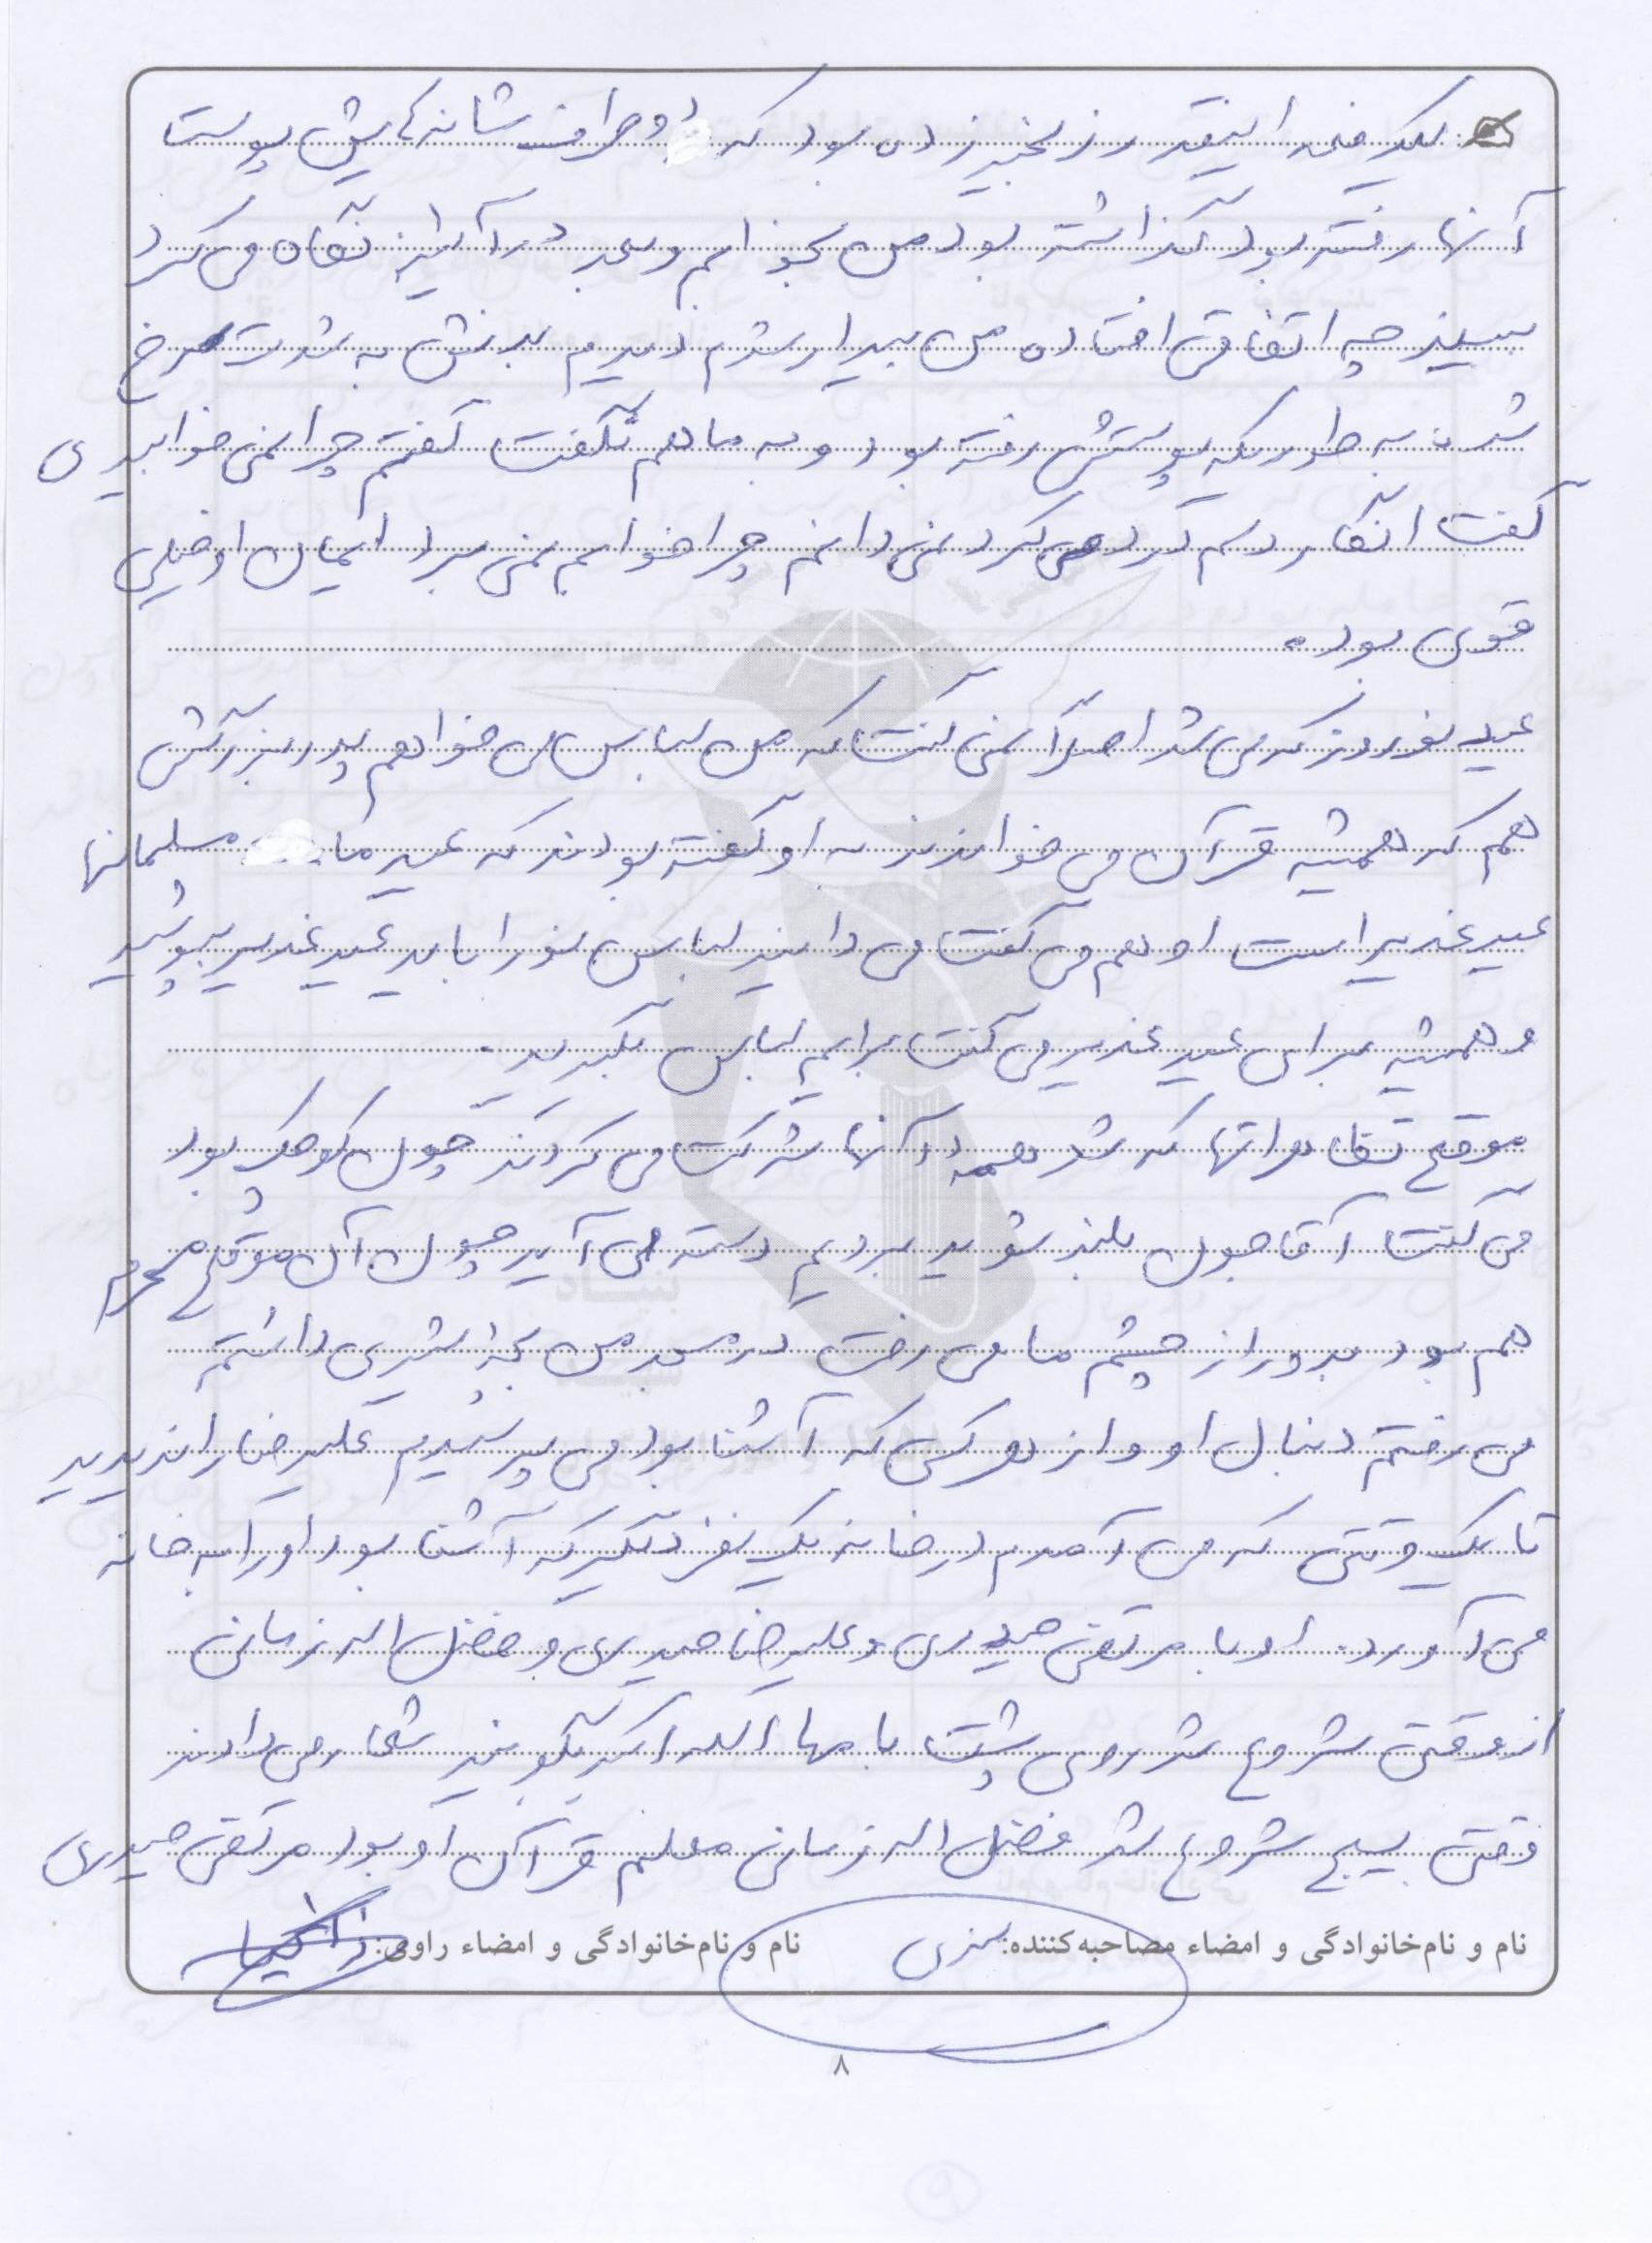 یکدفعه اینقدر زنجیر زده بود که دو طرف شانه هایش پوست
آنها رفته بود نگذاشته بود من بخوابم و بعد در آینه نگاه می کرد
ببیند چه اتفاقی افتاده من بیدار شدم دیدم بدنش به شدت سرخ
شده به طوریکه پوستش رفته بود و به ما هم نگفت گفتم چرا نمی خوابیدی
گفت انگار دلم درد می کرد نمی دانم چرا خوابم نمی برد ایمان او خیلی
قوی بود.
عید نوروز که می شد اصلاً نمی گفت که من لباس می خواهم پدربزرگش
هم که همیشه قرآن می خواندند به او گفته بودند که عید ما مسلمانها
عید غدیر است او هم می گفت می دانید لباس نو را باید عید غدیر بپوشید
و همیشه برای عید غدیر می گفت برایم لباس بگیرید.
موقع تظاهراتها که شد همه در آنها شرکت می کردند چون کوچک بود
می گفت آقاجون بلند شوید برویم دسته می آید چون آن موقع محرم
هم بود بدور از چشم ما می رفت در مسجد من بچه شیری داشتم
می رفتم دنبال او و از هر کسی که آشنا بود می پرسیدم علیرضا را ندیدید
تا یک وقتی که می آمدم در خانه یک نفر دیگر که آشنا بود او را به خانه
می آورد. او با مرتضی حیدری و علیرضا حیدری و فضل اله زمانی
از وقتی شروع شد روی پشت بامها الله اکبر بگویند شعار می دادند
وقتی بسیج شروع شد فضل اله زمانی معلم قرآن او بود مرتضی حیدری
نام و نام‌خانوادگی و امضاء مصاحبه‌کننده:
نام و نام‌خانوادگی و امضاء راوی:
۸
۹